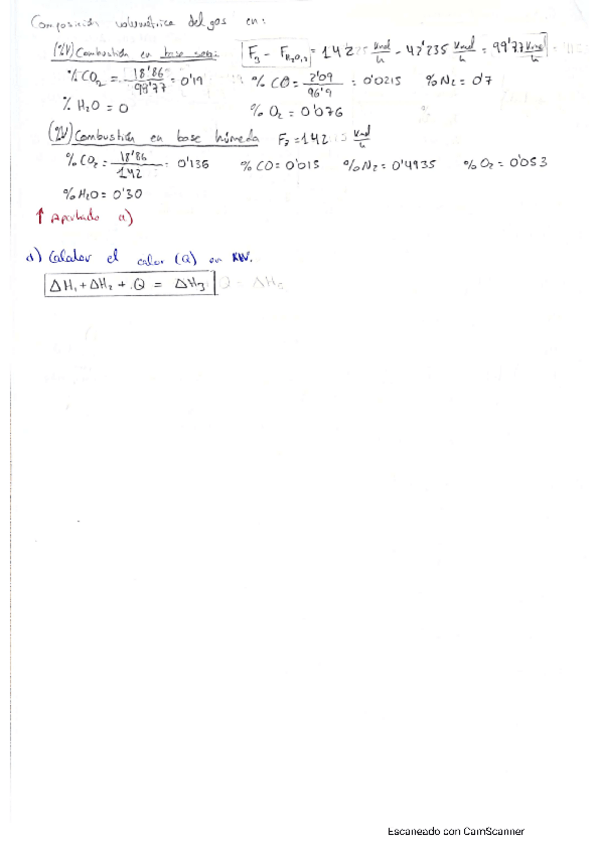 Composición volumétrica del gas en:
(%V) Combustión en base seca: F3 - FH2O,3 = 142 Kmol/h - 42'235 Kmol/h = 99'77 Kmol/h
% CO2 = 18'86/99'77 = 0'19 % CO = 2'09/96'9 = 0'0215 % N2 = 0'7
% H2O = 0 % O2 = 0'076
(%V) Combustión en base húmeda F3 = 142 Kmol/h
% CO2 = 18'86/142 = 0'136 % CO = 0'015 % N2 = 0'4935 % O2 = 0'053
% H2O = 0'30
↑ Apartado a)
d) Calcular el calor (Q) en KW.
ΔH1 + ΔH2 + Q = ΔH3
Escaneado con CamScanner